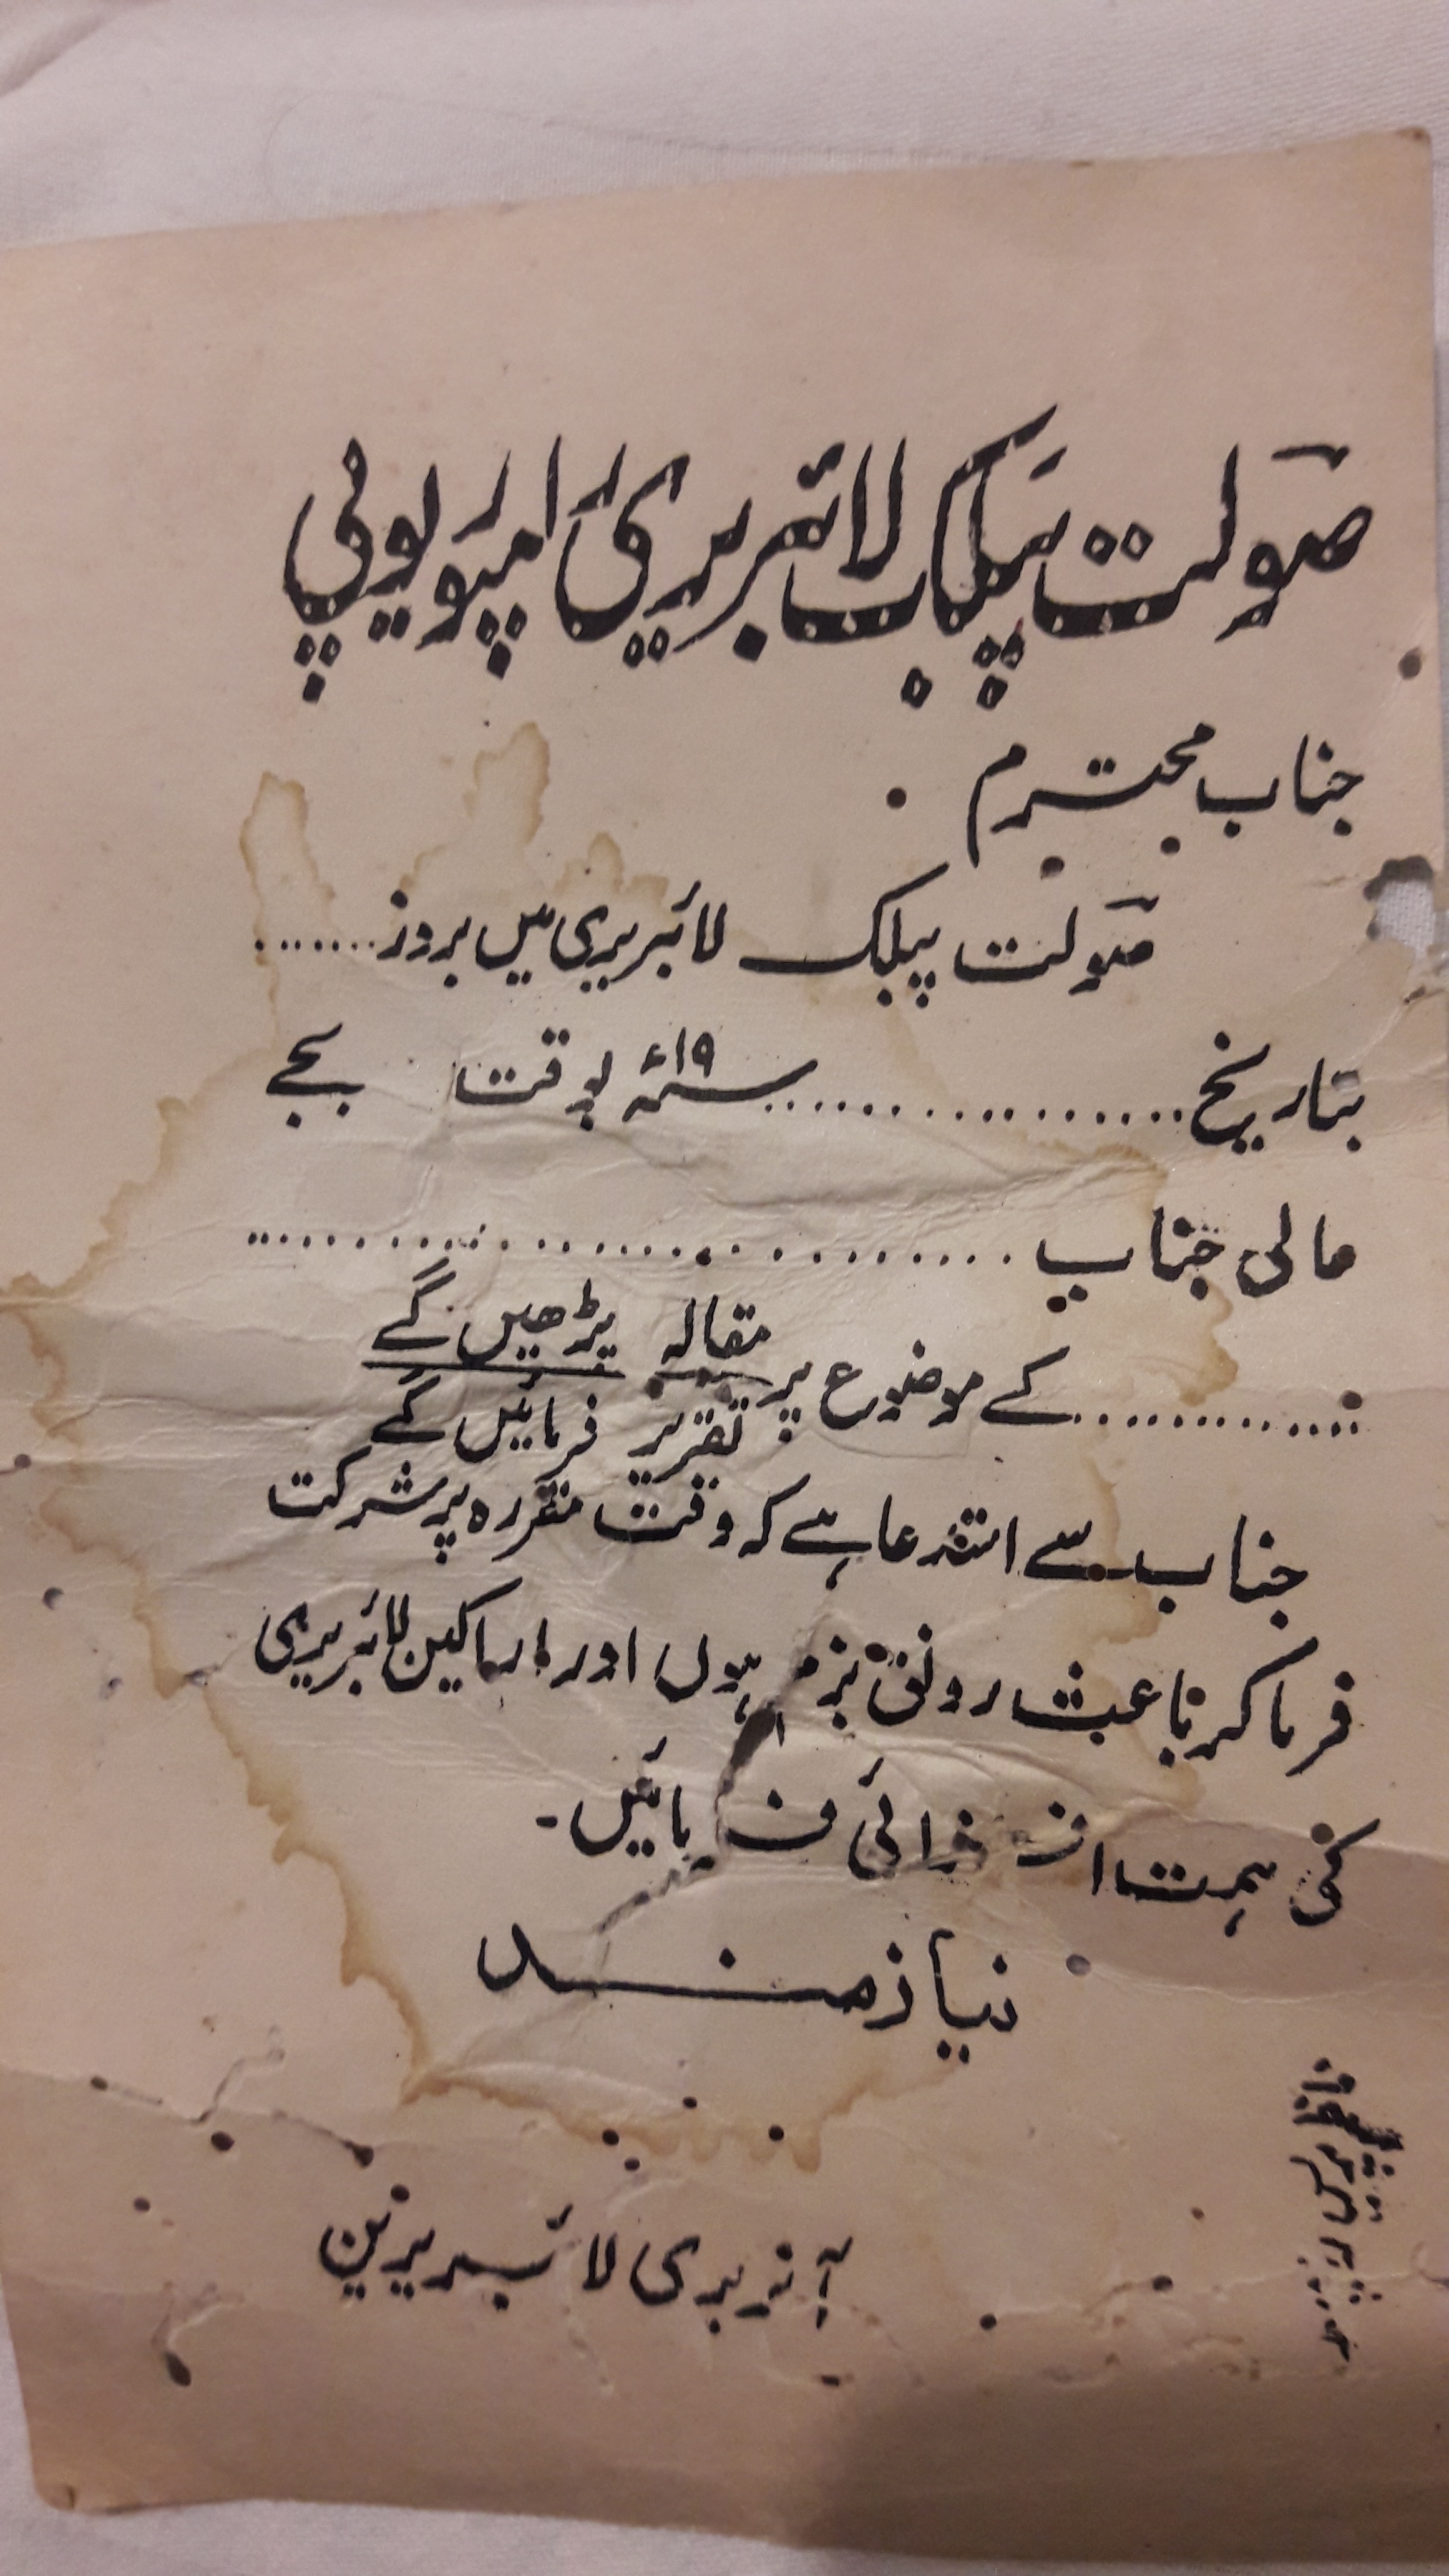 صولت پبلک لائبریری رامپور یوپی
جناب محترم
صولت پبلک لائبریری میں بروز .......
بتاریخ ................. ۱۹ء بوقت بجے
عالی جناب .....................
............. کے موضوع پر مقالہ پڑھیں گے
تقریر فرمائیں گے
جناب سے استدعا ہے کہ وقت مقررہ پر شرکت
فرما کر باعث رونق بزم ہوں اور اراکین لائبریری
کی ہمت افزائی فرمائیں۔
نیازمند
آنریری لائبریرین